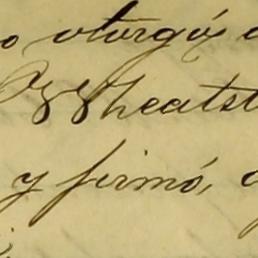 o otorgó
Wheatst
y firmó,